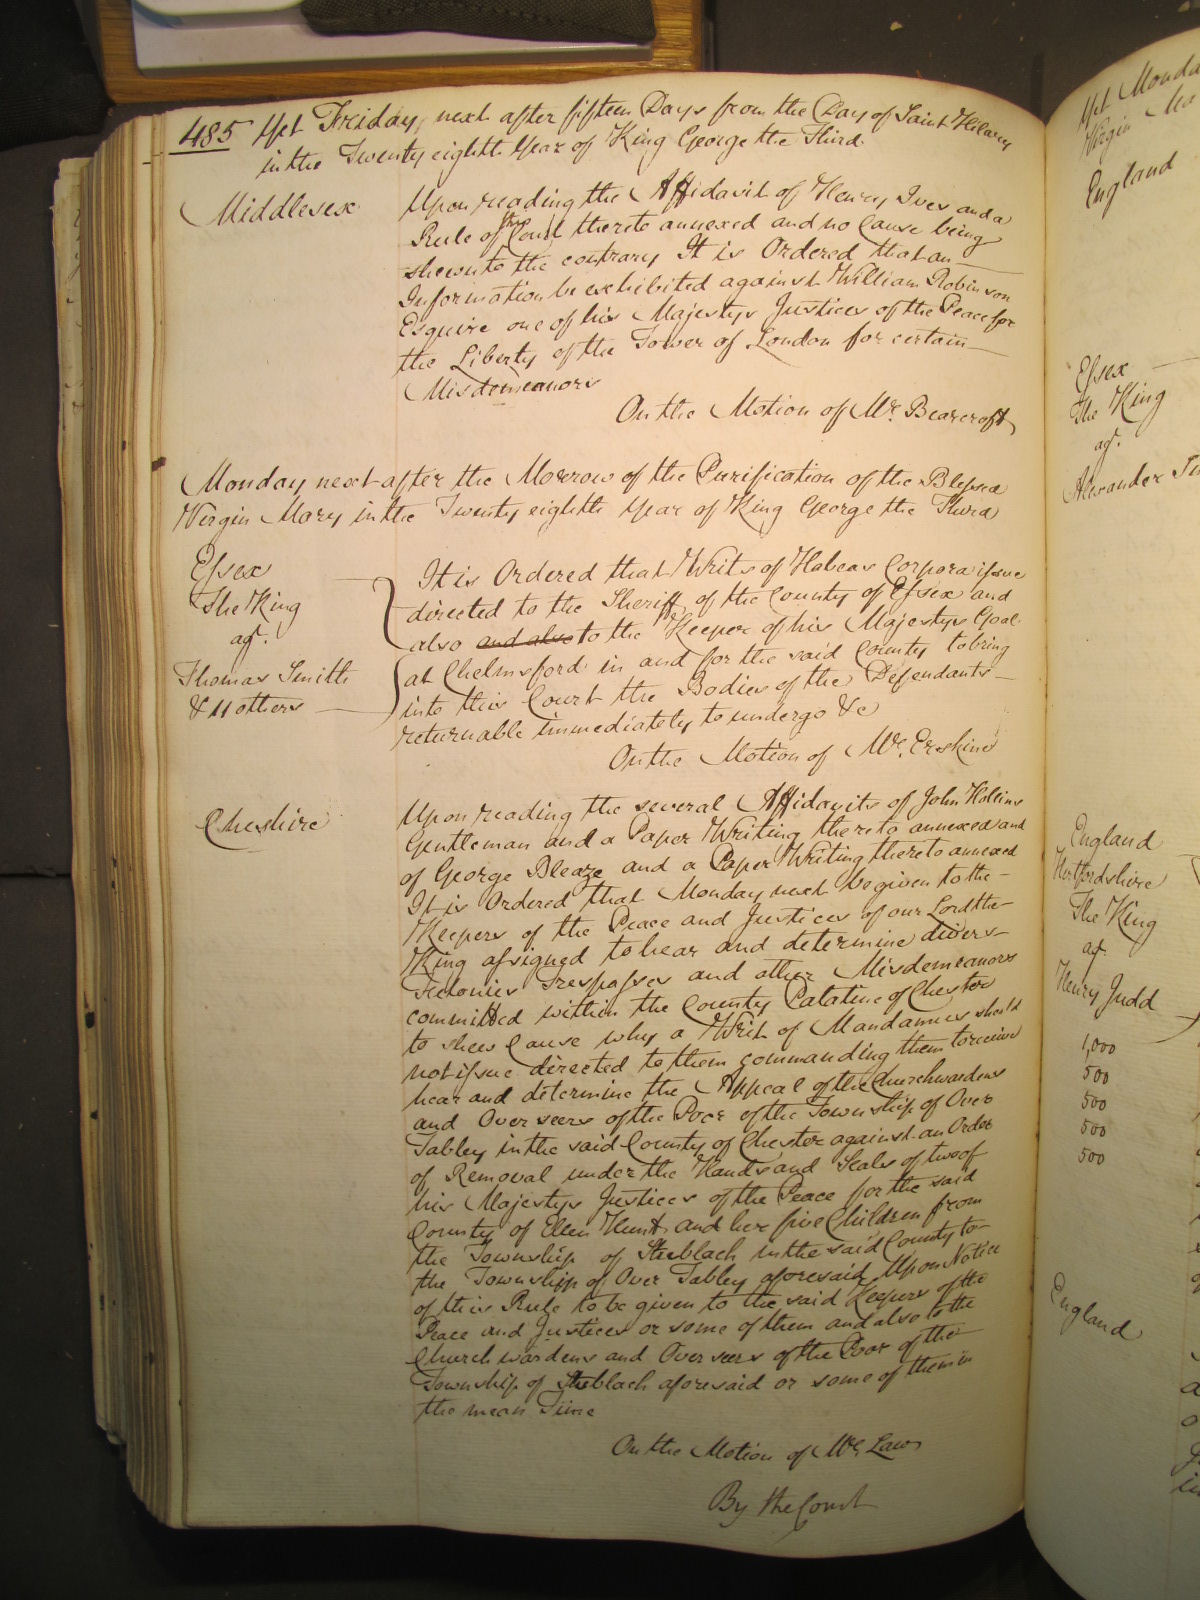 485 Yet Friday next after fifteen Days from the Day of Saint Hilary
in the Twenty eighth Year of King George the Third
Middlesex
Upon reading the Affidavit of Henry Ives and a
Rule of this Court thereto annexed and no Cause being
shewn to the contrary It is Ordered that an
Information be exhibited against William Robinson
Esquire one of his Majestys Justices of the Peace for
the Liberty of the Tower of London for certain
Misdemeanors
On the Motion of Mr. Bearcroft
Monday next after the Morrow of the Purification of the Blessed
Virgin Mary in the Twenty eighth Year of King George the Third
Essex
The King
agt.
Thomas Smith
& 11 others
It is Ordered that Writs of Habeas Corpora issue
directed to the Sheriff of the County of Essex and
also and also to the Keeper of his Majestys Goal
at Chelmsford in and for the said County to bring
into this Court the Bodies of the Defendants
returnable immediately to undergo &c
On the Motion of Mr. Erskine
Cheshire
Upon reading the several Affidavits of John Hollins
Gentleman and a Paper Writing thereto annexed and
of George Bleaze and a Paper Writing thereto annexed
It is Ordered that Monday next be given to the
Keepers of the Peace and Justices of our Lord the
King assigned to hear and determine divers
Felonies Trespasses and other Misdemeanors
committed within the County Palatine of Chester
to shew Cause why a Writ of Mandamus should
not issue directed to them commanding them to receive
hear and determine the Appeal of the Churchwardens
and Overseers of the Poor of the Township of Over
Tabley in the said County of Chester against an Order
of Removal under the Hands and Seals of two of
his Majestys Justices of the Peace for the said
County of Ellen Hunt and her five Children from
the Township of Stublach in the said County to
the Township of Over Tabley aforesaid Upon Notice
of this Rule to be given to the said Keepers of the
Peace and Justices or some of them and also to the
Church wardens and Overseers of the Poor of the
Township of Stublach aforesaid or some of them in
the mean Time
On the Motion of Mr. Law
By the Court
Yet Monda
Virgin Ma
England
Essex
The King
agt.
Alexander
England
Hertfordshire
The King
agt.
Henry Judd
1,000
500
500
500
500
England